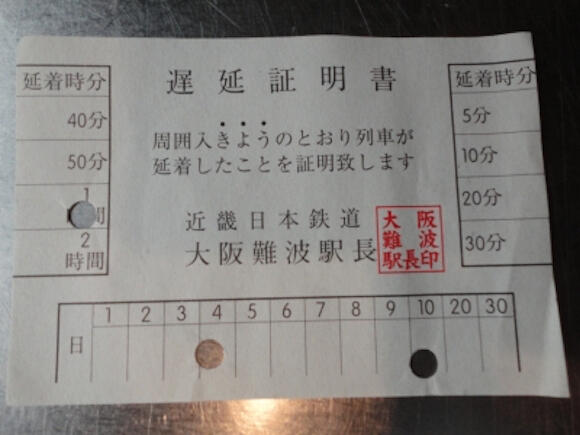 遅延証明書
周囲入きようのとおり列車が
延着したことを証明致します
近畿日本鉄道
大阪難波駅長
大阪
難波
駅長印
延着時分
40分
50分
1
間
2
時間
延着時分
5分
10分
20分
30分
日
1 2 3 4 5 6 7 8 9 10 20 30